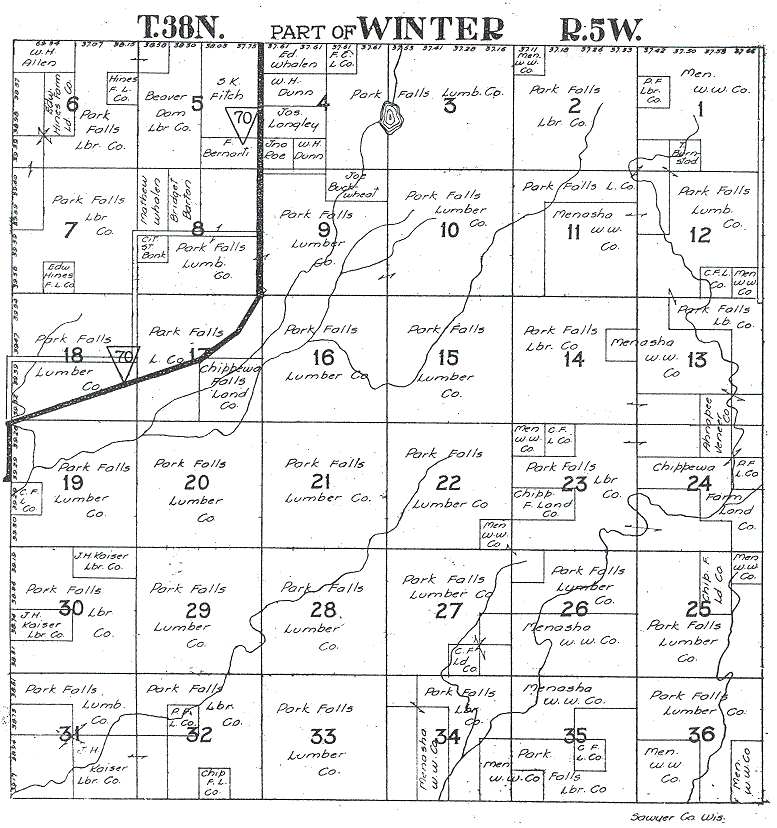 T.38N. PART OF WINTER R.5W.
W.H.
Allen
Edw
Hines Farm
Ld Co.
6
Park
Falls
Lbr. Co.
Hines
F.L.
Co.
Beaver
Dam
Lbr Co.
5
S.K.
Fitch
70
F.
Bernarti
Ed
Whalen
C.F.
L Co.
W.H.
Dunn
4
Jos.
Langley
Jno
Roe
W.H.
Dunn
Park Falls Lumb. Co.
3
Men.
W.W.
Co.
Park Falls
2
Lbr Co.
P.F.
Lbr.
Co.
Men.
W.W. Co.
1
T.
Born-
stad
Park Falls
Lbr
7
Co.
Edw
Hines
F.L.Co
Mathew
Whalen
Bridget
Barton
8
Cit
St
Bank
Park Falls
Lumb.
Co.
Joe
Buck-
wheat
Park Falls
9
Lumber
Co.
Park Falls
Lumber
Co.
10
Park Falls L. Co.
Menasha
W.W.
11
Co.
Park Falls
Lumb.
Co.
12
C.F.L.
Co.
Men
W.W.
Co
Park Falls
18
Lumber
Co
70
Park Falls
17
L. Co.
Chippewa
Falls
Land
Co.
Park Falls
16
Lumber Co
Park Falls
15
Lumber
Co.
Park Falls
Lbr. Co.
14
Park Falls
Lb. Co.
Menasha
W.W.
Co
13
Ahnapee
Veneer
Co.
C.F.
L
Co.
Park Falls
19
Lumber
Co.
Park Falls
20
Lumber
Co
Park Falls
21
Lumber Co.
Park Falls
22
Lumber
Co.
Men
W.W.
Co.
Men
W.W.
Co.
C.F.
L Co.
Park Falls
23 Lbr
Co.
Chipp.
F. Land
Co.
Chippewa
24
Farm
Land
Co.
P.F.
L
Co.
J.H. Kaiser
Lbr. Co.
Park Falls
30 Lbr
Co.
J.H.
Kaiser
Lbr Co.
Park Falls
29
Lumber
Co.
Park Falls
28
Lumber
Co.
Park Falls
Lumber Co
27
C.F.
Ld
Co.
Park Falls
Lumber
Co.
26
Menasha
W.W. Co.
Chip. F.
Ld Co
Men
W.W.
Co
25
Park Falls
Lumber
Co.
Park Falls
Lumb.
Co.
31
J.H.
Kaiser
Lbr Co.
Park Falls
Lbr.
Co
P.F.
L. Co.
32
Chip
F.L.
Co.
Park Falls
33
Lumber
Co.
Park Falls
Lbr
Co.
34
Menasha
W.W. Co.
Menasha
W.W. Co.
35
Men
W.W. Co
Park
Falls
Lbr. Co.
C.F.
L.
Co.
Park Falls
Lumber Co.
36
Men
W.W.
Co.
Men.
W.W.
Co.
Sawyer Co. Wis.